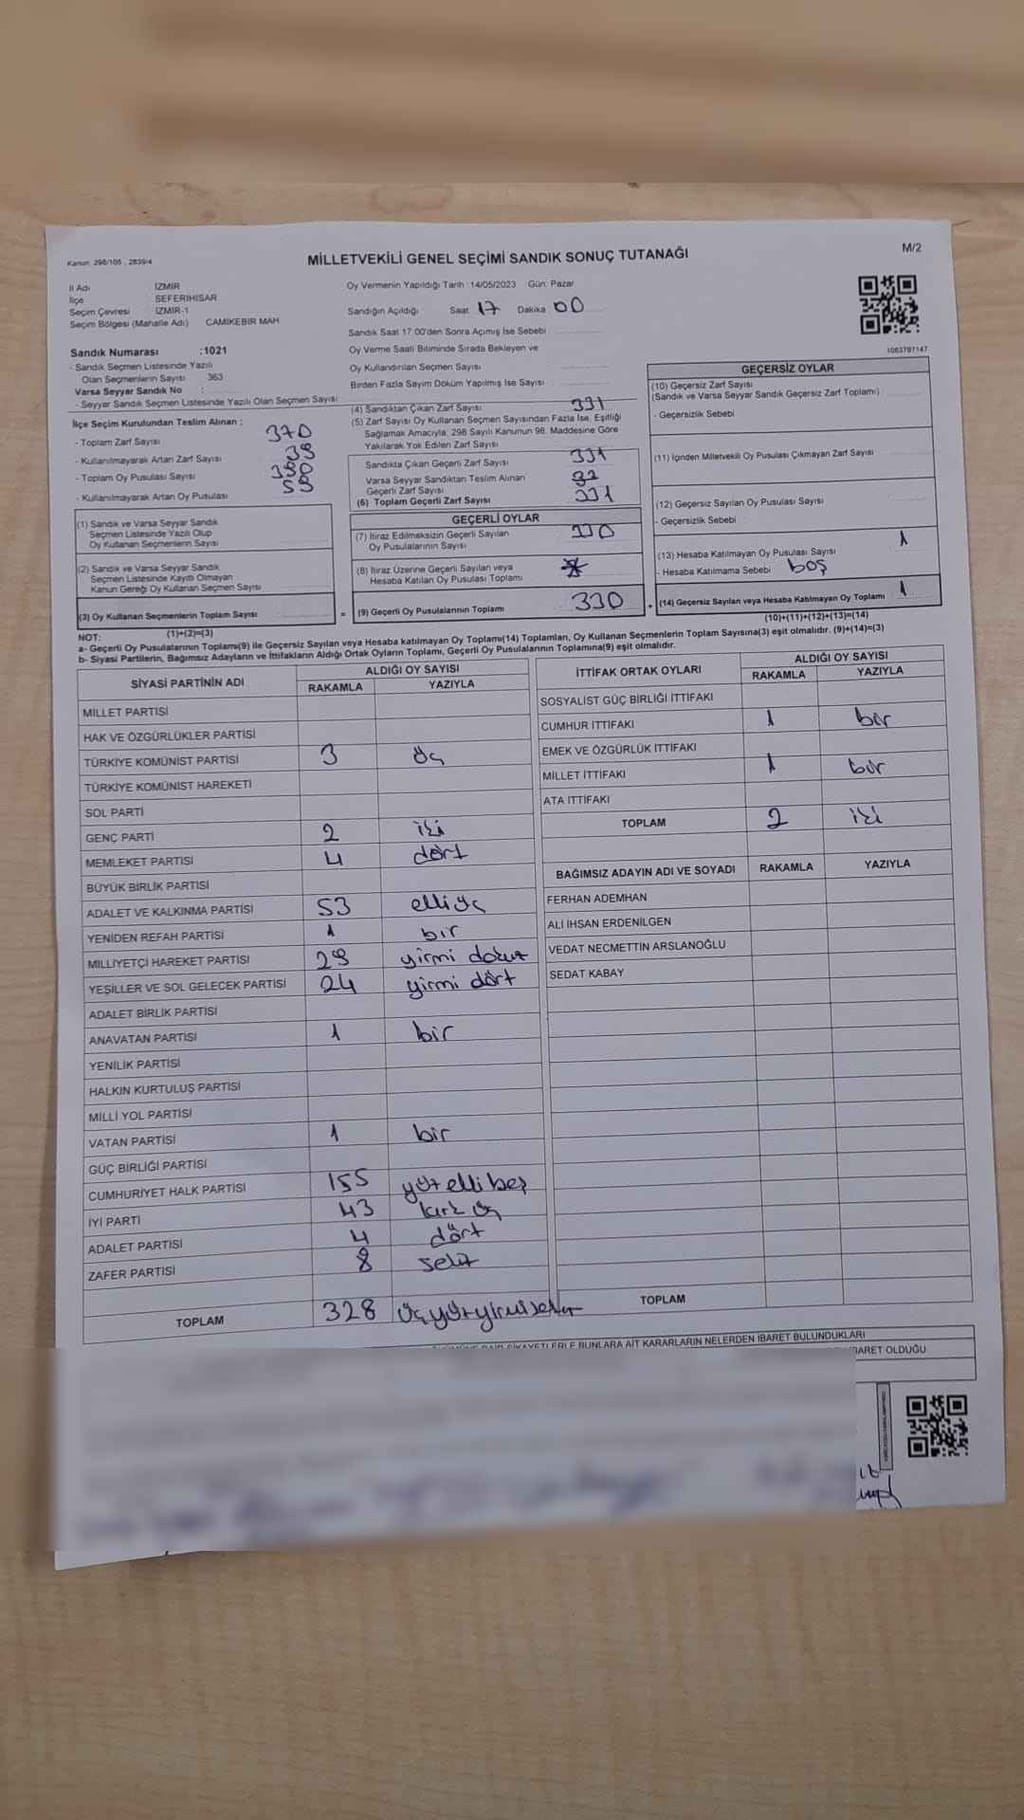 Kanun: 298/105 , 2839/4
MİLLETVEKİLİ GENEL SEÇİMİ SANDIK SONUÇ TUTANAĞI
M/2
İl Adı İZMİR
İlçe SEFERİHİSAR
Seçim Çevresi İZMİR-1
Seçim Bölgesi (Mahalle Adı) CAMİKEBİR MAH
Sandık Numarası :1021
- Sandık Seçmen Listesinde Yazılı
Olan Seçmenlerin Sayısı 363
Varsa Seyyar Sandık No :
- Seyyar Sandık Seçmen Listesinde Yazılı Olan Seçmen Sayısı
Oy Vermenin Yapıldığı Tarih :14/05/2023 Gün: Pazar
Sandığın Açıldığı Saat 17 Dakika 00
Sandık Saat 17:00'den Sonra Açımış İse Sebebi
Oy Verme Saati Bitiminde Sırada Bekleyen ve
Oy Kullandırılan Seçmen Sayısı
Birden Fazla Sayım Döküm Yapılmış İse Sayısı
1063797147
İlçe Seçim Kurulundan Teslim Alınan :
- Toplam Zarf Sayısı 370
- Kullanılmayarak Artan Zarf Sayısı 39
- Toplam Oy Pusulası Sayısı
- Kullanılmayarak Artan Oy Pusulası
(1) Sandık ve Varsa Seyyar Sandık
Seçmen Listesinde Yazılı Olup
Oy Kullanan Seçmenlerin Sayısı
(2) Sandık ve Varsa Seyyar Sandık
Seçmen Listesinde Kayıtlı Olmayan
Kanun Gereği Oy Kullanan Seçmen Sayısı
(3) Oy Kullanan Seçmenlerin Toplam Sayısı
(1)+(2)=(3)
(4) Sandıktan Çıkan Zarf Sayısı 331
(5) Zarf Sayısı Oy Kullanan Seçmen Sayısından Fazla İse, Eşitliği
Sağlamak Amacıyla; 298 Sayılı Kanunun 98. Maddesine Göre
Yakılarak Yok Edilen Zarf Sayısı
Sandıkta Çıkan Geçerli Zarf Sayısı 331
Varsa Seyyar Sandıktan Teslim Alınan
Geçerli Zarf Sayısı
(6) Toplam Geçerli Zarf Sayısı 331
GEÇERLİ OYLAR
(7) İtiraz Edilmeksizin Geçerli Sayılan
Oy Pusulalarının Sayısı 330
(8) İtiraz Üzerine Geçerli Sayılan veya
Hesaba Katılan Oy Pusulası Toplamı
= (9) Geçerli Oy Pusulalarının Toplamı 330
GEÇERSİZ OYLAR
(10) Geçersiz Zarf Sayısı
(Sandık ve Varsa Seyyar Sandık Geçersiz Zarf Toplamı)
- Geçersizlik Sebebi
(11) İçinden Milletvekili Oy Pusulası Çıkmayan Zarf Sayısı
(12) Geçersiz Sayılan Oy Pusulası Sayısı
- Geçersizlik Sebebi
(13) Hesaba Katılmayan Oy Pusulası Sayısı 1
- Hesaba Katılmama Sebebi boş
+ (14) Geçersiz Sayılan veya Hesaba Katılmayan Oy Toplamı 1
(10)+(11)+(12)+(13)=(14)
NOT:
a- Geçerli Oy Pusulalarının Toplamı(9) ile Geçersiz Sayılan veya Hesaba katılmayan Oy Toplamı(14) Toplamları, Oy Kullanan Seçmenlerin Toplam Sayısına(3) eşit olmalıdır. (9)+(14)=(3)
b- Siyasi Partilerin, Bağımsız Adayların ve İttifakların Aldığı Ortak Oyların Toplamı, Geçerli Oy Pusulalarının Toplamına(9) eşit olmalıdır.
SİYASİ PARTİNİN ADI ALDIĞI OY SAYISI
RAKAMLA YAZIYLA
MİLLET PARTİSİ
HAK VE ÖZGÜRLÜKLER PARTİSİ
TÜRKİYE KOMÜNİST PARTİSİ 3 üç
TÜRKİYE KOMÜNİST HAREKETİ
SOL PARTİ
GENÇ PARTİ 2 iki
MEMLEKET PARTİSİ 4 dört
BÜYÜK BİRLİK PARTİSİ
ADALET VE KALKINMA PARTİSİ 53 elliüç
YENİDEN REFAH PARTİSİ 1 bir
MİLLİYETÇİ HAREKET PARTİSİ 29 yirmi dokuz
YEŞİLLER VE SOL GELECEK PARTİSİ 24 yirmi dört
ADALET BİRLİK PARTİSİ
ANAVATAN PARTİSİ 1 bir
YENİLİK PARTİSİ
HALKIN KURTULUŞ PARTİSİ
MİLLİ YOL PARTİSİ
VATAN PARTİSİ 1 bir
GÜÇ BİRLİĞİ PARTİSİ
CUMHURİYET HALK PARTİSİ 155 yüz ellibeş
İYİ PARTİ 43 kırk üç
ADALET PARTİSİ 4 dört
ZAFER PARTİSİ 8 sekiz
TOPLAM 328 üçyüzyirmisekiz
İTTİFAK ORTAK OYLARI ALDIĞI OY SAYISI
RAKAMLA YAZIYLA
SOSYALİST GÜÇ BİRLİĞİ İTTİFAKI
CUMHUR İTTİFAKI 1 bir
EMEK VE ÖZGÜRLÜK İTTİFAKI
MİLLET İTTİFAKI 1 bir
ATA İTTİFAKI
TOPLAM 2 iki
BAĞIMSIZ ADAYIN ADI VE SOYADI RAKAMLA YAZIYLA
FERHAN ADEMHAN
ALİ İHSAN ERDENİLGEN
VEDAT NECMETTİN ARSLANOĞLU
SEDAT KABAY
TOPLAM
ŞİKAYETLERLE BUNLARA AİT KARARLARIN NELERDEN İBARET BULUNDUKLARI
İBARET OLDUĞU